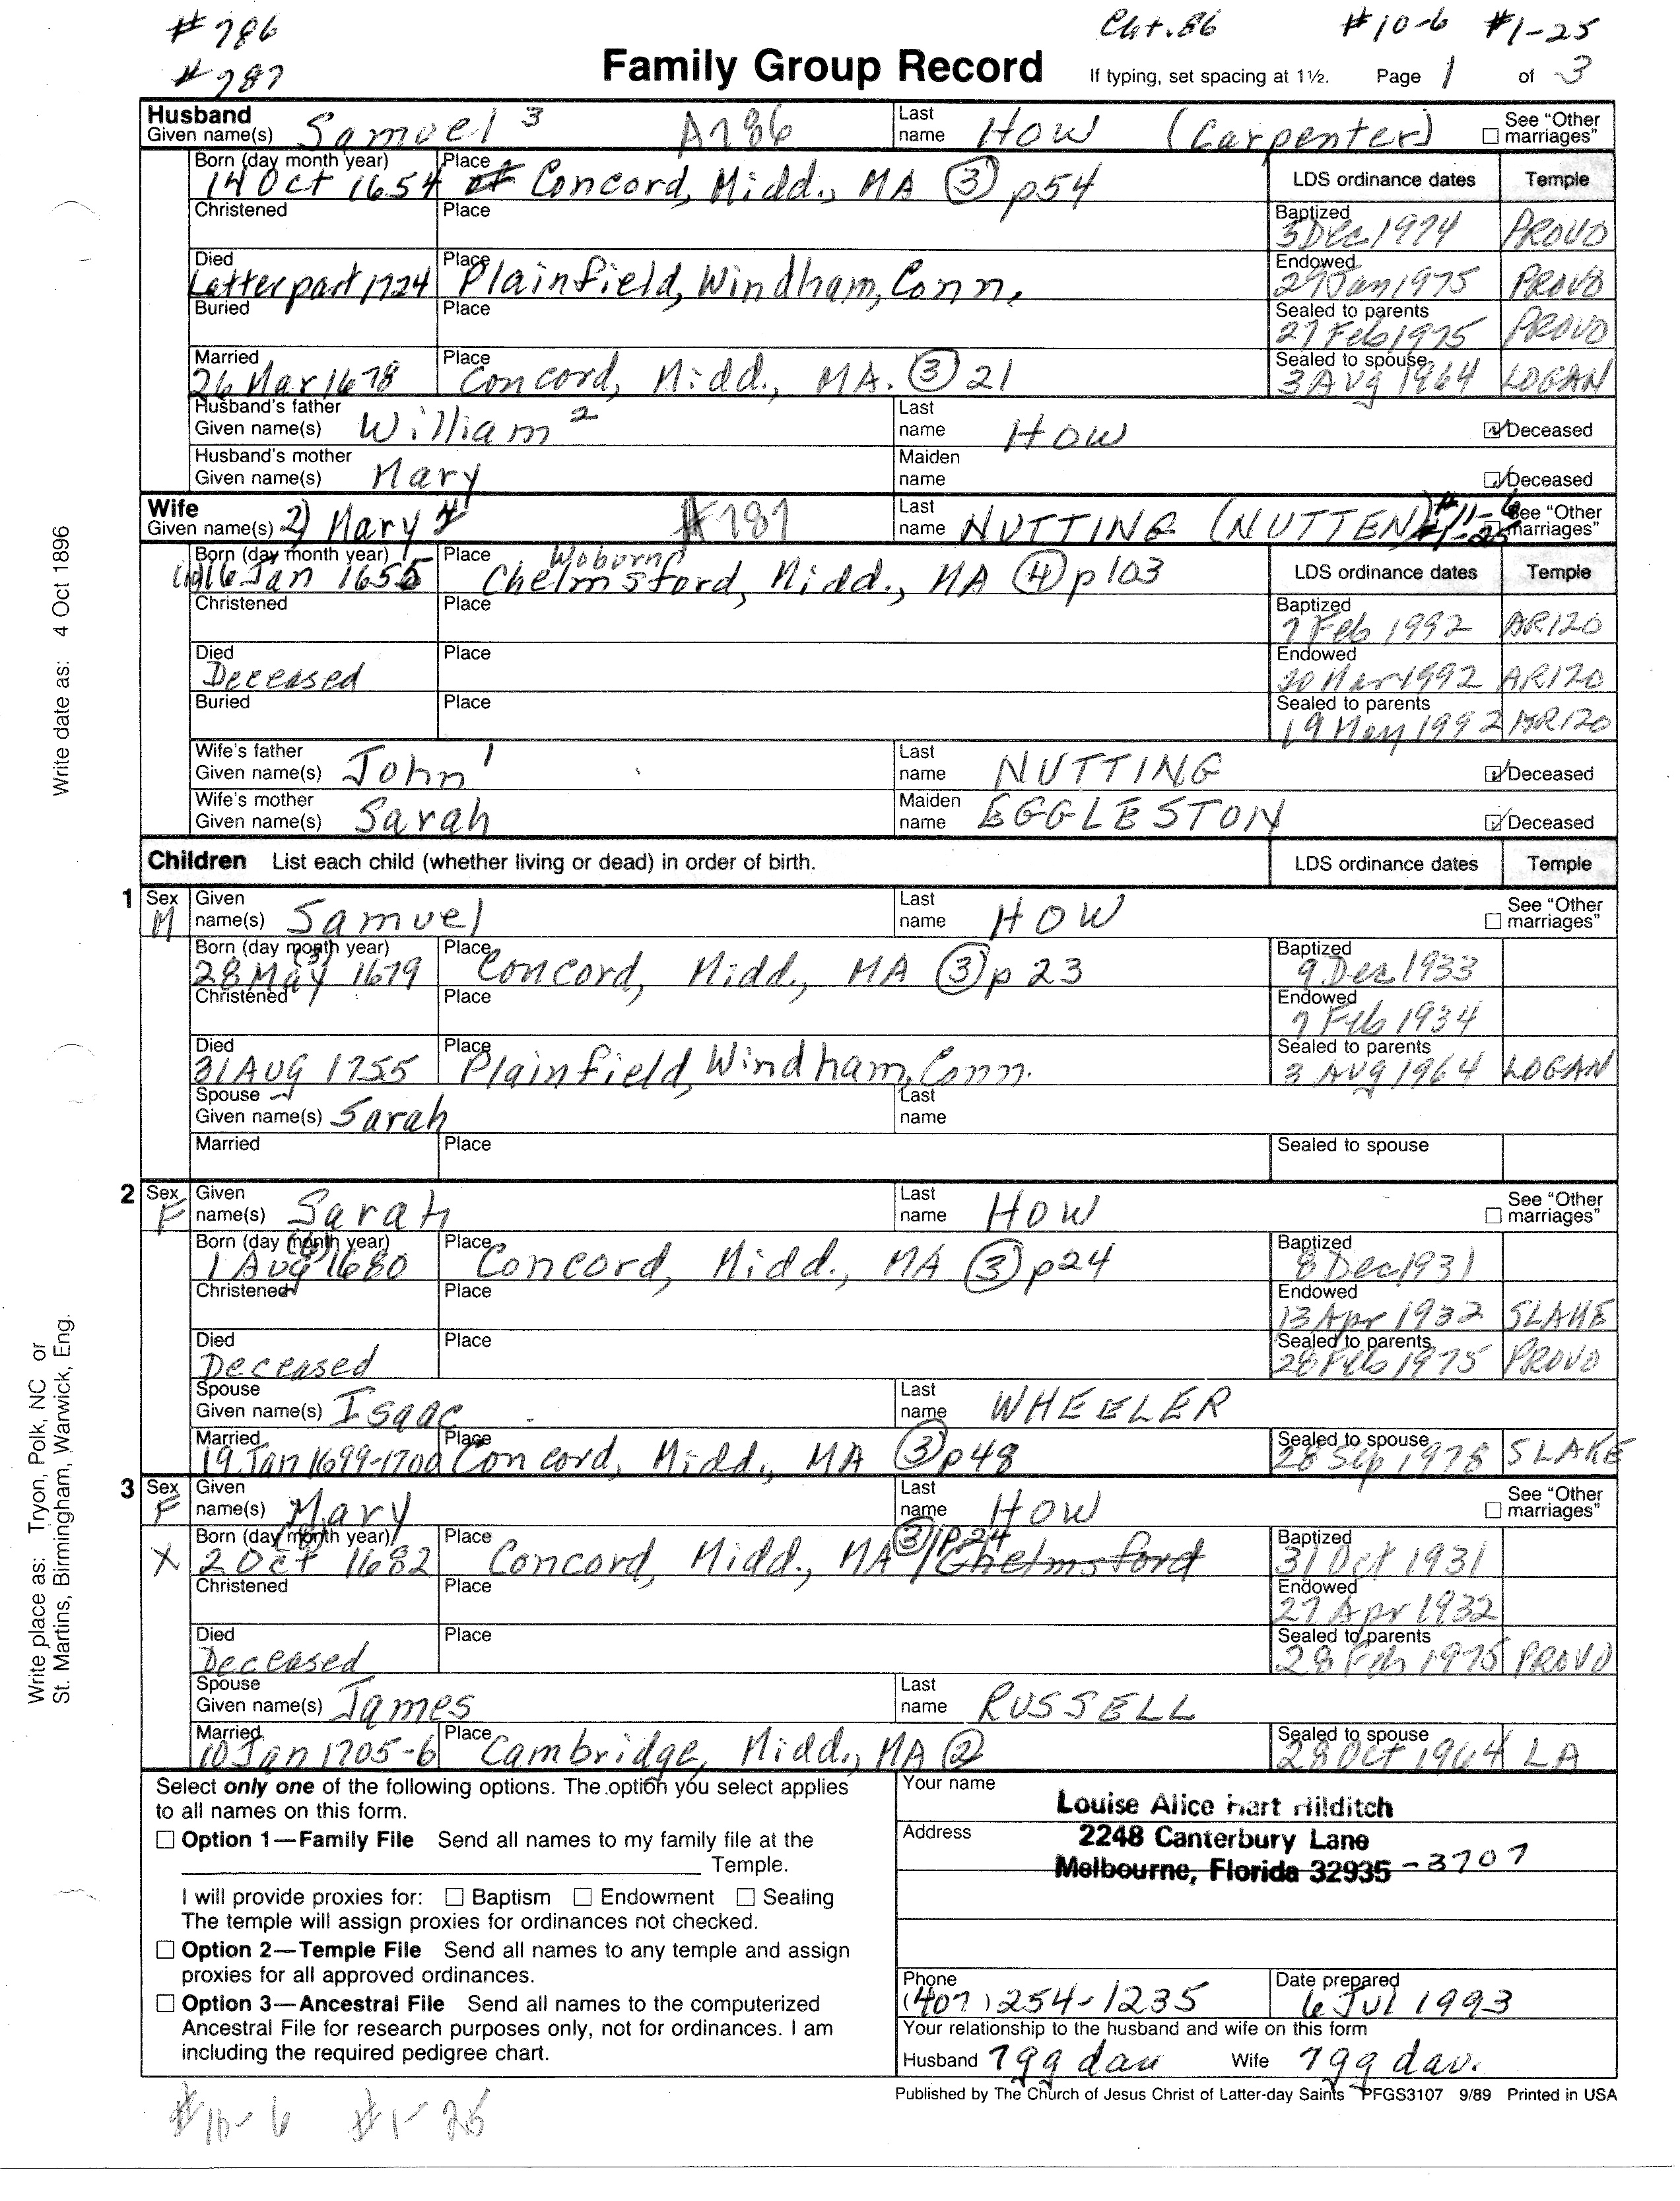 #786 Cht.86 #10-6 #1-25
#787 Family Group Record If typing, set spacing at 1½. Page 1 of 3
Husband Given name(s) Samuel 3 A786 Last name How (Carpenter) See "Other marriages"
Born (day month year) 14 Oct 1654 Place Concord, Midd., MA (3) p54 LDS ordinance dates Temple
Christened Place Baptized 3 Dec 1974 PROVO
Died Latter part 1724 Place Plainfield, Windham, Conn. Endowed 29 Jan 1975 PROVO
Buried Place Sealed to parents 27 Feb 1975 PROVO
Married 26 Mar 1678 Place Concord, Midd., MA. (3) 21 Sealed to spouse 3 Aug 1964 LOGAN
Husband's father Given name(s) William 2 Last name How Deceased
Husband's mother Given name(s) Mary Maiden name Deceased
Wife Given name(s) 2) Mary 4 #787 Last name NUTTING (NUTTEN) See "Other marriages"
Born (day month year) 16 Jan 1655 Place Woburn Chelmsford, Midd., MA (4) p103 LDS ordinance dates Temple
Christened Place Baptized 7 Feb 1992 AR120
Died Deceased Place Endowed 20 Mar 1992 AR120
Buried Place Sealed to parents 19 May 1992 AR120
Wife's father Given name(s) John 1 Last name NUTTING Deceased
Wife's mother Given name(s) Sarah Maiden name EGGLESTON Deceased
Children List each child (whether living or dead) in order of birth. LDS ordinance dates Temple
1 Sex M Given name(s) Samuel Last name HOW See "Other marriages"
Born (day month year) 28 May (3) 1679 Place Concord, Midd., MA (3) p 23 Baptized 9 Dec 1933
Christened Place Endowed 7 Feb 1934
Died 31 AUG 1755 Place Plainfield, Windham, Conn. Sealed to parents 3 Aug 1964 LOGAN
Spouse Given name(s) Sarah Last name
Married Place Sealed to spouse
2 Sex F Given name(s) Sarah Last name HOW See "Other marriages"
Born (day month year) 1 Aug 1680 Place Concord, Midd., MA (3) p24 Baptized 8 Dec 1931
Christened Place Endowed 13 Apr 1932 SLAKE
Died Deceased Place Sealed to parents 28 Feb 1975 PROVO
Spouse Given name(s) Isaac Last name WHEELER
Married 19 Jan 1699-1700 Place Concord, Midd., MA (3) p48 Sealed to spouse 28 Sep 1978 SLAKE
3 Sex F Given name(s) Mary Last name HOW See "Other marriages"
X Born (day month year) 2 Oct 1682 Place Concord, Midd., MA (3) p24 / Chelmsford Baptized 31 Oct 1931
Christened Place Endowed 27 Apr 1932
Died Deceased Place Sealed to parents 28 Feb 1975 PROVO
Spouse Given name(s) James Last name RUSSELL
Married 10 Jan 1705-6 Place Cambridge, Midd., MA (2) Sealed to spouse 28 Oct 1964 LA
Select only one of the following options. The option you select applies
to all names on this form.
Option 1—Family File Send all names to my family file at the
Temple.
I will provide proxies for: Baptism Endowment Sealing
The temple will assign proxies for ordinances not checked.
Option 2—Temple File Send all names to any temple and assign
proxies for all approved ordinances.
Option 3—Ancestral File Send all names to the computerized
Ancestral File for research purposes only, not for ordinances. I am
including the required pedigree chart.
Your name Louise Alice Hart Hilditch
Address 2248 Canterbury Lane
Melbourne, Florida 32935 -3707
Phone (407) 254-1235 Date prepared 6 Jul 1993
Your relationship to the husband and wife on this form
Husband 7gg dau Wife 7gg dau.
Published by The Church of Jesus Christ of Latter-day Saints PFGS3107 9/89 Printed in USA
#10-6 #1-25
Write date as: 4 Oct 1896
Write place as: Tryon, Polk, NC or
St. Martins, Birmingham, Warwick, Eng.